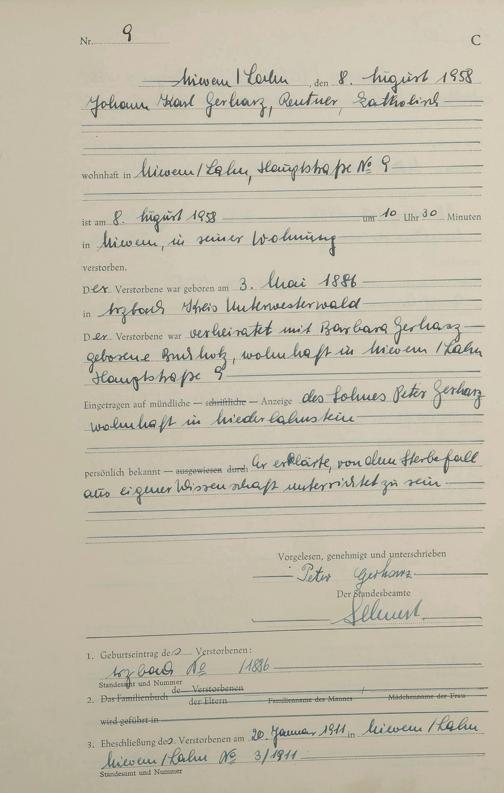 Nr. 9 C
Miwem / Lahn, den 8. August 1958
Johann Karl Gerharz, Rentner, katholisch
wohnhaft in Miwem / Lahn, Hauptstraße No 9
ist am 8. August 1958 um 10 Uhr 30 Minuten
in Miwem, in seiner Wohnung
verstorben.
Der Verstorbene war geboren am 3. Mai 1886
in Arzbach Kreis Unterwesterwald
Der Verstorbene war verheiratet mit Barbara Gerharz
geborene Buchholz, wohnhaft in Miwem / Lahn
Hauptstraße 9
Eingetragen auf mündliche — schriftliche — Anzeige des Sohnes Peter Gerharz
wohnhaft in Niederlahnstein
persönlich bekannt — ausgewiesen durch Er erklärte, von dem Sterbefall
aus eigener Wissenschaft unterrichtet zu sein
Vorgelesen, genehmigt und unterschrieben
Peter Gerharz
Der Standesbeamte
1. Geburtseintrag des Verstorbenen:
Arzbach No /1886
Standesamt und Nummer
2. Das Familienbuch de Verstorbenen / der Eltern
Familienname des Mannes / Mädchenname der Frau
wird geführt in
3. Eheschließung des Verstorbenen am 20. Januar 1911 in Miwem / Lahn
Miwem / Lahn No 3/1911
Standesamt und Nummer